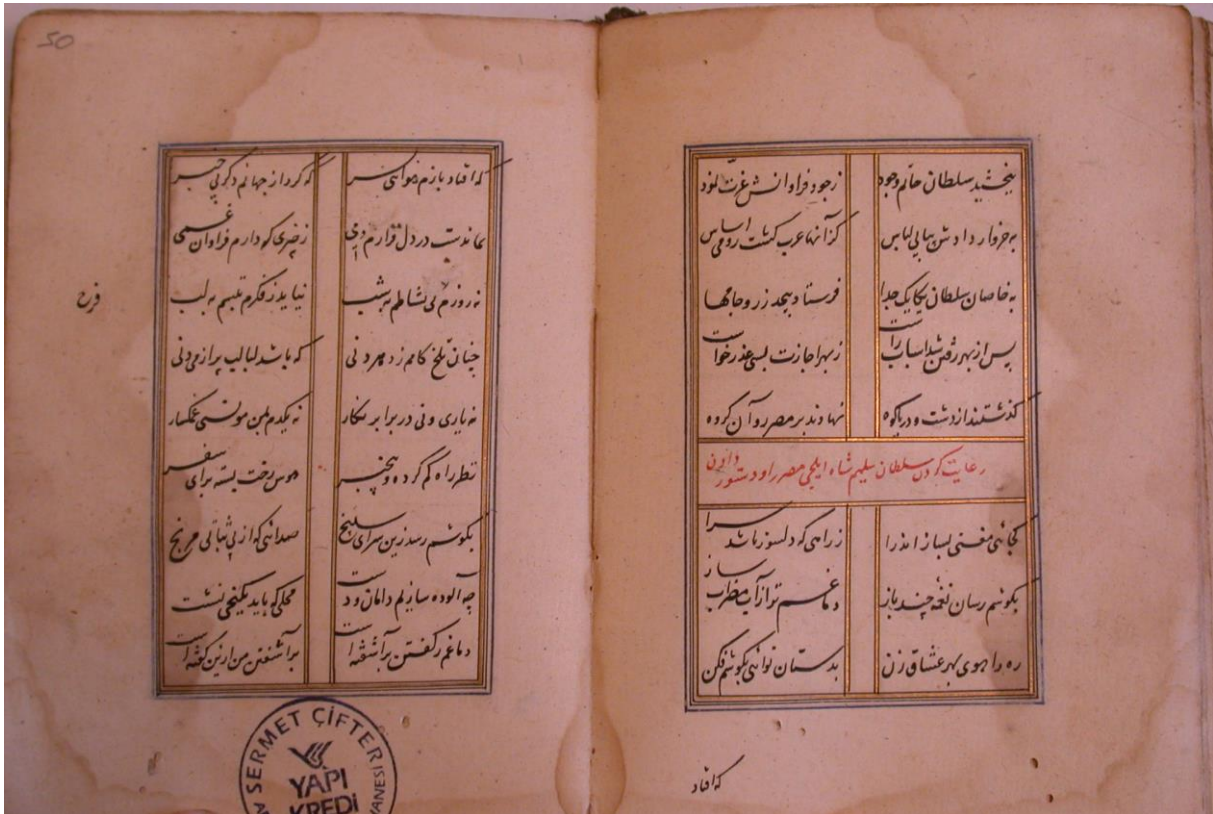 ببخشید سلطان حاتم وجود زجود فراوانش عزت فزود
به خروار دادش پیاپی لباس کزآنها عرب گشت رومی اساس
به خاصان سلطان یکایک جدا فرستاد بیحد زر و جامها
پس از بهر رفتن شد اسباب راست زبهر اجازت بسی عذر خواست
گذشتند از دشت و دریا و کوه نهادند بر مصر رو آن گروه
رعایت کردن سلطان سلیم شاه ایلچی مصر را و دستور دادن
کجائی مغنی بساز اندرا ز راهی که دلسوز باشد سرا
بکوشم رسان نغمه چند باز دماغم تو از آب مضراب ساز
ره راهوی بهر عشاق زن بدستان نوائی بکوشم فکن
که افتاد
50
که افتاد بازم هوائی بسر که کرد از جهانم دگر بی خبر
نماندست در دل قرارم دمی که دارم فراوان غمی
نه روزم نشاطم به شب نیاید ز فکرم تبسم به لب
چنان تلخ کامم ز دهر دنی که باشد لبالب پر از می دنی
نه یاری ونی در برابر نکار نه یکدم بمن مونسی غمکسار
راه کم کرده و بیخبر هوس رخت بسته برای سفر
بکوشم رسد زین سرای سپنج صدائی که از بی ثباتی مرنج
چه آلوده سازیم دامان و دست محلی که باید بکنجی نشست
دماغم ز گفتن برآشفته است برآشفتن من ازین گفته است
فرح
SERMET ÇİFTER
YAPI
KREDİ